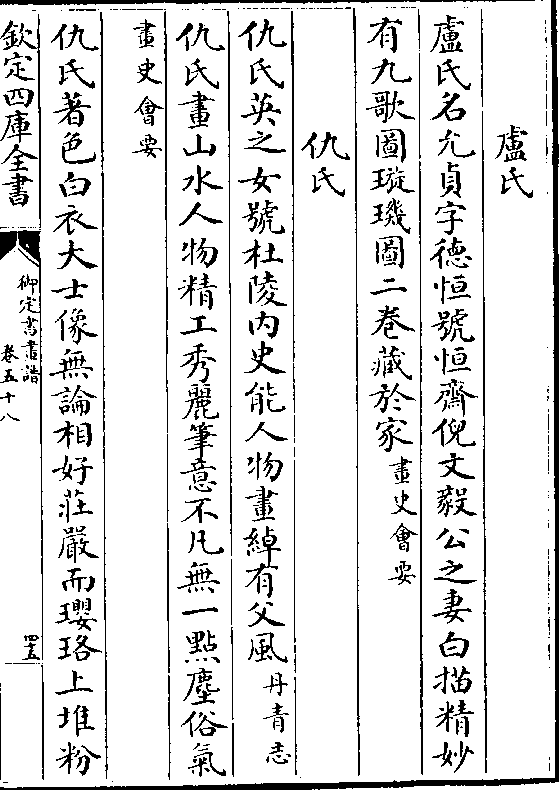 盧氏
盧氏名允貞字德恒號恒齋倪文毅公之妻白描精妙
有九歌圖璇璣圖二卷藏於家畫史會要
仇氏
仇氏英之女號杜陵内史能人物畫綽有父風丹青志
仇氏畫山水人物精工秀麗筆意不凡無一點塵俗氣
畫史會要
仇氏著色白衣大士像無論相好莊嚴而瓔珞上堆粉
欽定四庫全書
御定書畫譜
卷五十八
四五